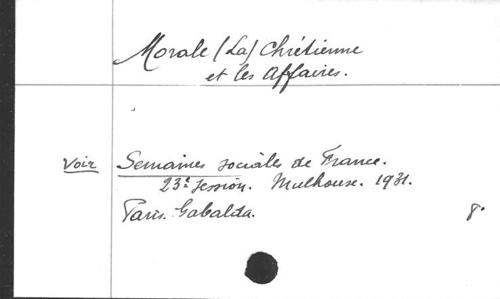 Morale (La) Chrétienne
et les Affaires.
Voir Semaines sociales de France.
23e session. Mulhouse. 1931.
Paris. Gabalda. 8°